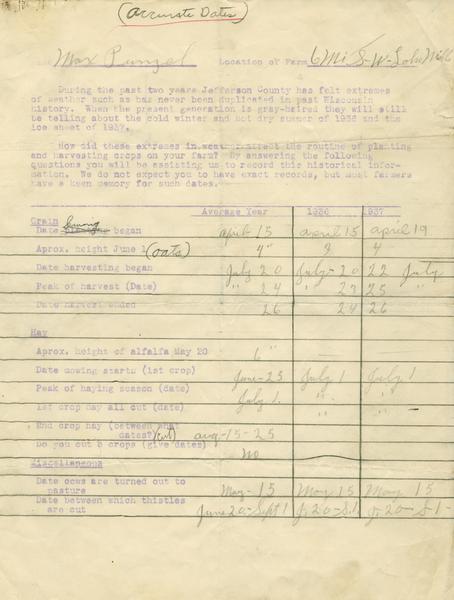 (Accurate Dates)
Max Punzel Location of Farm 6 Mi S-W-Lake Mills
During the past two years Jefferson County has felt extremes
of weather such as has never been duplicated in past Wisconsin
history. When the present generation is gray-haired they will still
be telling about the cold winter and hot dry summer of 1936 and the
ice sheet of 1937.
How did these extremes in weather affect the routine of planting
and harvesting crops on your farm? By answering the following
questions you will be assisting us to record this historical infor-
mation. We do not expect you to have exact records, but most farmers
have a keen memory for such dates.
Average Year 1936 1937
Grain
Date began April 15 April 15 April 19
Aprox. height June 1 (Oats) 4" 3 4
Date harvesting began July 20 July-20 22 July
Peak of harvest (Date) " 24 " 23 25 "
Date harvest ended 26 24 26
Hay
Aprox. height of alfalfa May 20 6"
Date mowing starts (1st crop) June-25 July 1 July 1
Peak of haying season (date) July 1. " "
1st crop hay all cut (date) " "
2nd crop hay (between what
dates?) (cut) Aug-15-25
Do you cut 3 crops (give dates) No
Miscellaneous
Date cows are turned out to
pasture May-15 May 15 May 15
Date between which thistles
are cut June 20-Sept 1 J. 20-S.1- J. 20-S-1-